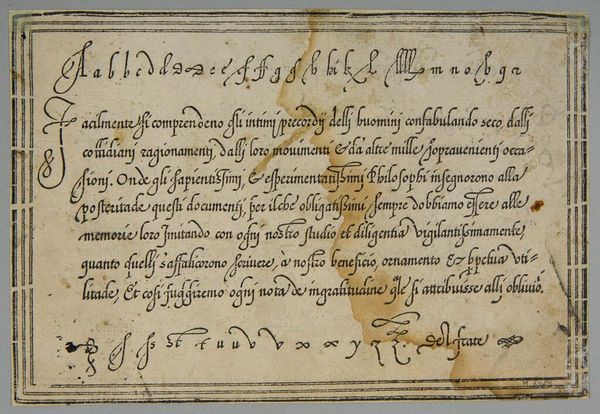 A a b b c d d d d e e f f g g h b bi k l l m n o p q r
Facilmente si comprendeno gli intimi precordij delli huomini confabulando seco, dalli
cottidiani ragionamenti, dalli loro mouimenti & da altre mille sopravenienti occa-
sioni. Onde gli sapientissimi, & esperimentatissimi Philosophi insegnorono alla
posteritade questi documenti, per ilche obligatissimi sempre dobbiamo essere alle
memorie loro Imitando con ogni nostro studio et diligentia vigilantissimamente,
quanto quelli s'affaticorono scriuere, à nostro beneficio, ornamento & uti-
litade, Et cosi fuggiremo ogni nota de ingratitudine si attribuisse alli obliuiō.
ſ ſs st t u u v v x x y z del frate